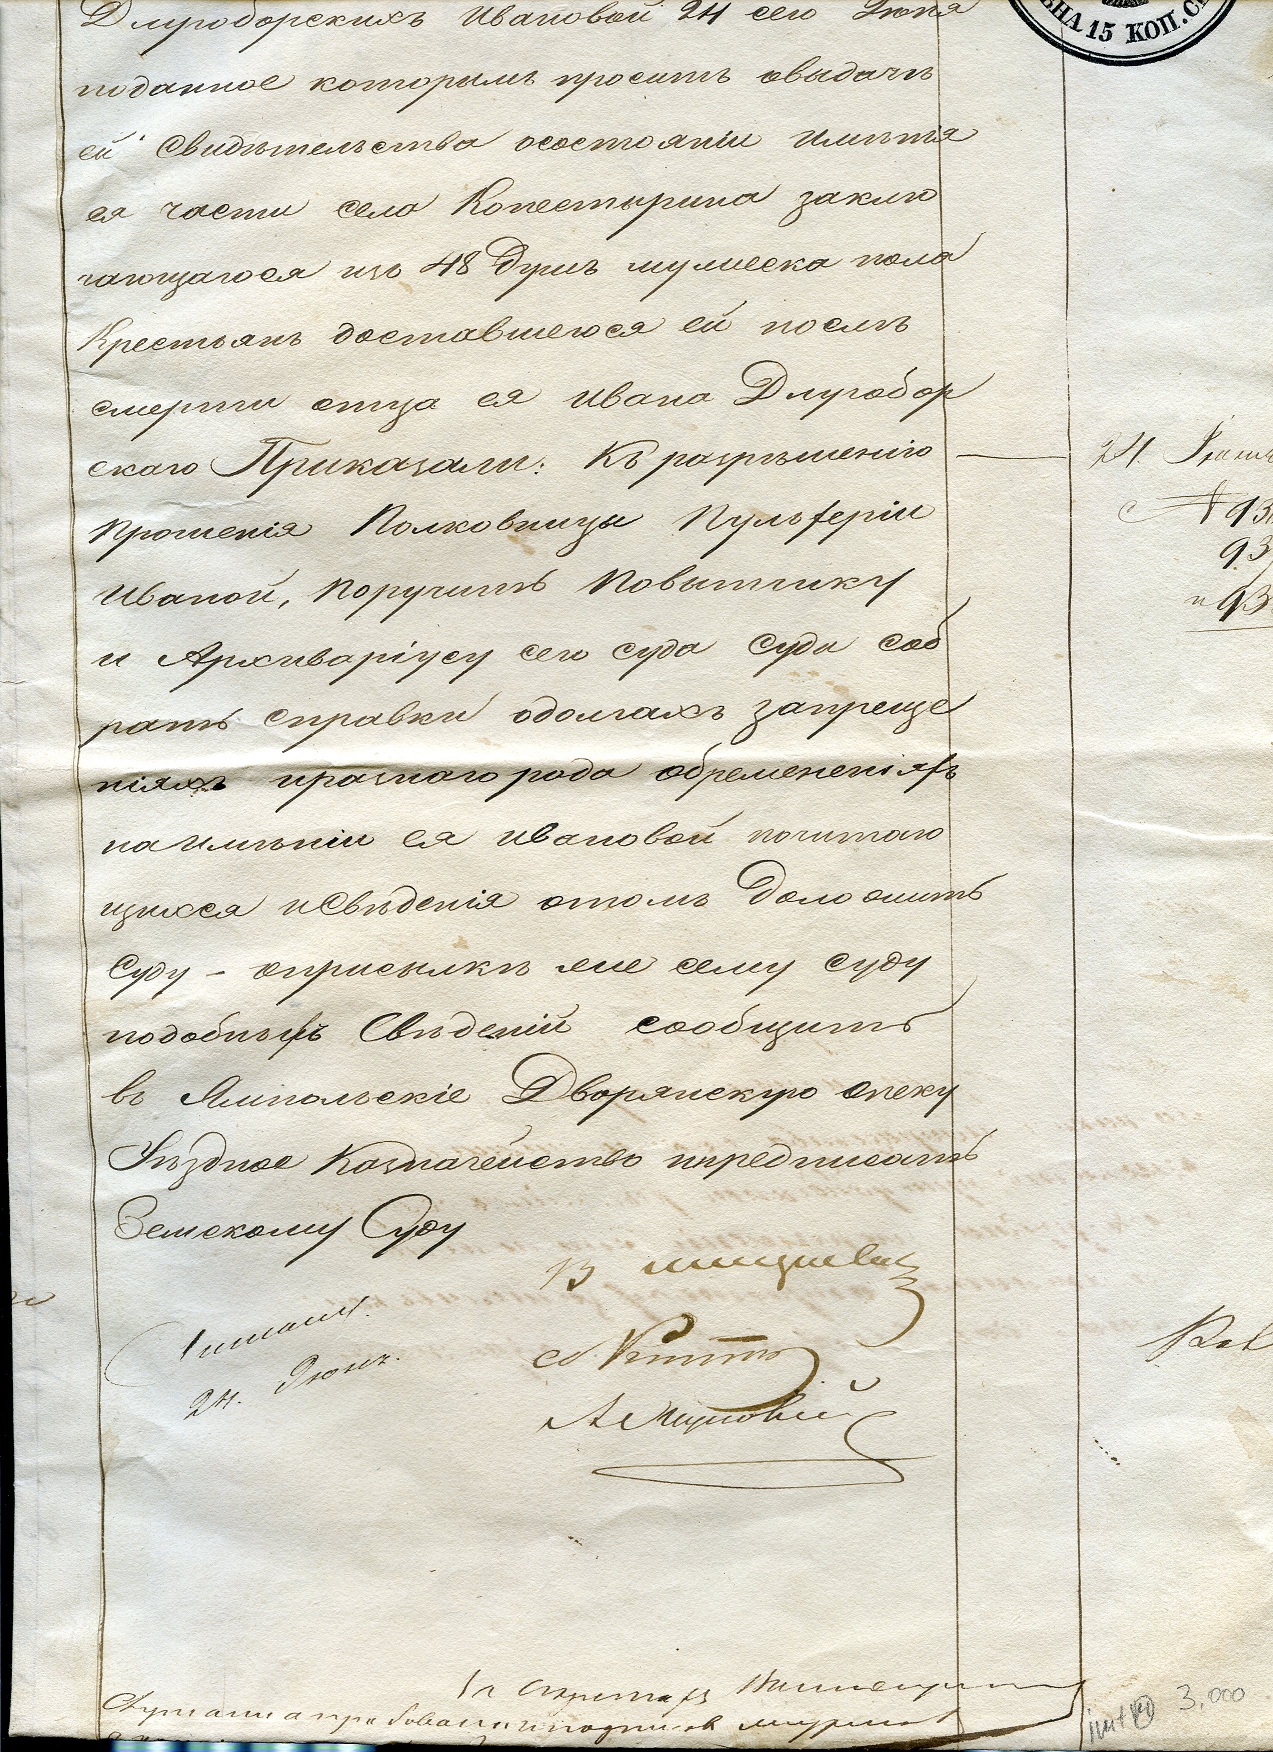 ЬНА 15 КОП. С
Длугоборскихъ Ивановой 24 сего Июня
поданное которымъ проситъ овыдачѣ
ей Свидѣтельства осостояніи имѣнія
ея части села Копестырина заклю
чающагося изъ 48 Душъ мужеска пола
Крестьянъ доставшегося ей послѣ
смерти отца ея Ивана Длугобор
скаго Приказали: Къ разрѣшенію
прошенія Полковницы Пульферіи
Иваной, Поручить Повытчику
и Архиваріусу сего суда Суда Соб
рать справки одолгахъ запреще
ніяхъ иразнаго рода обремененіяхъ
на имѣніи ея Ивановой почитаю
щихся иСвѣденія отомъ Доложить
Суду - оприсылкѣ же сему суду
подобныхъ Свѣденій сообщить
въ Ямпольскіе Дворянскую опеку
Уѣздное Казначейство ипредписать
Земскому Суду
24. Июня
24
93
93
и 93
3,000